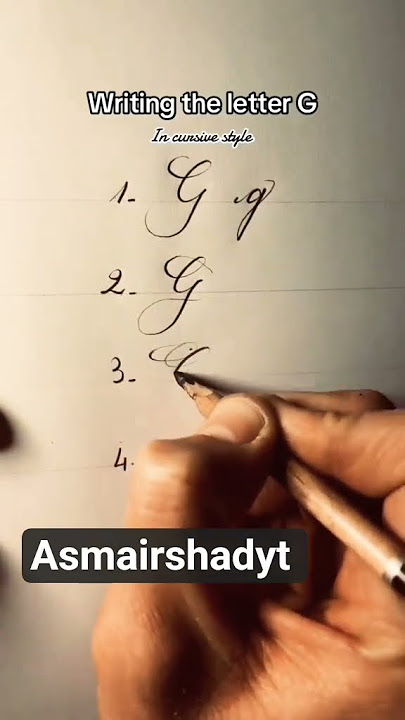 Writing the letter G
In cursive style
1- G g
2- G
3- G
4.
Asmairshadyt